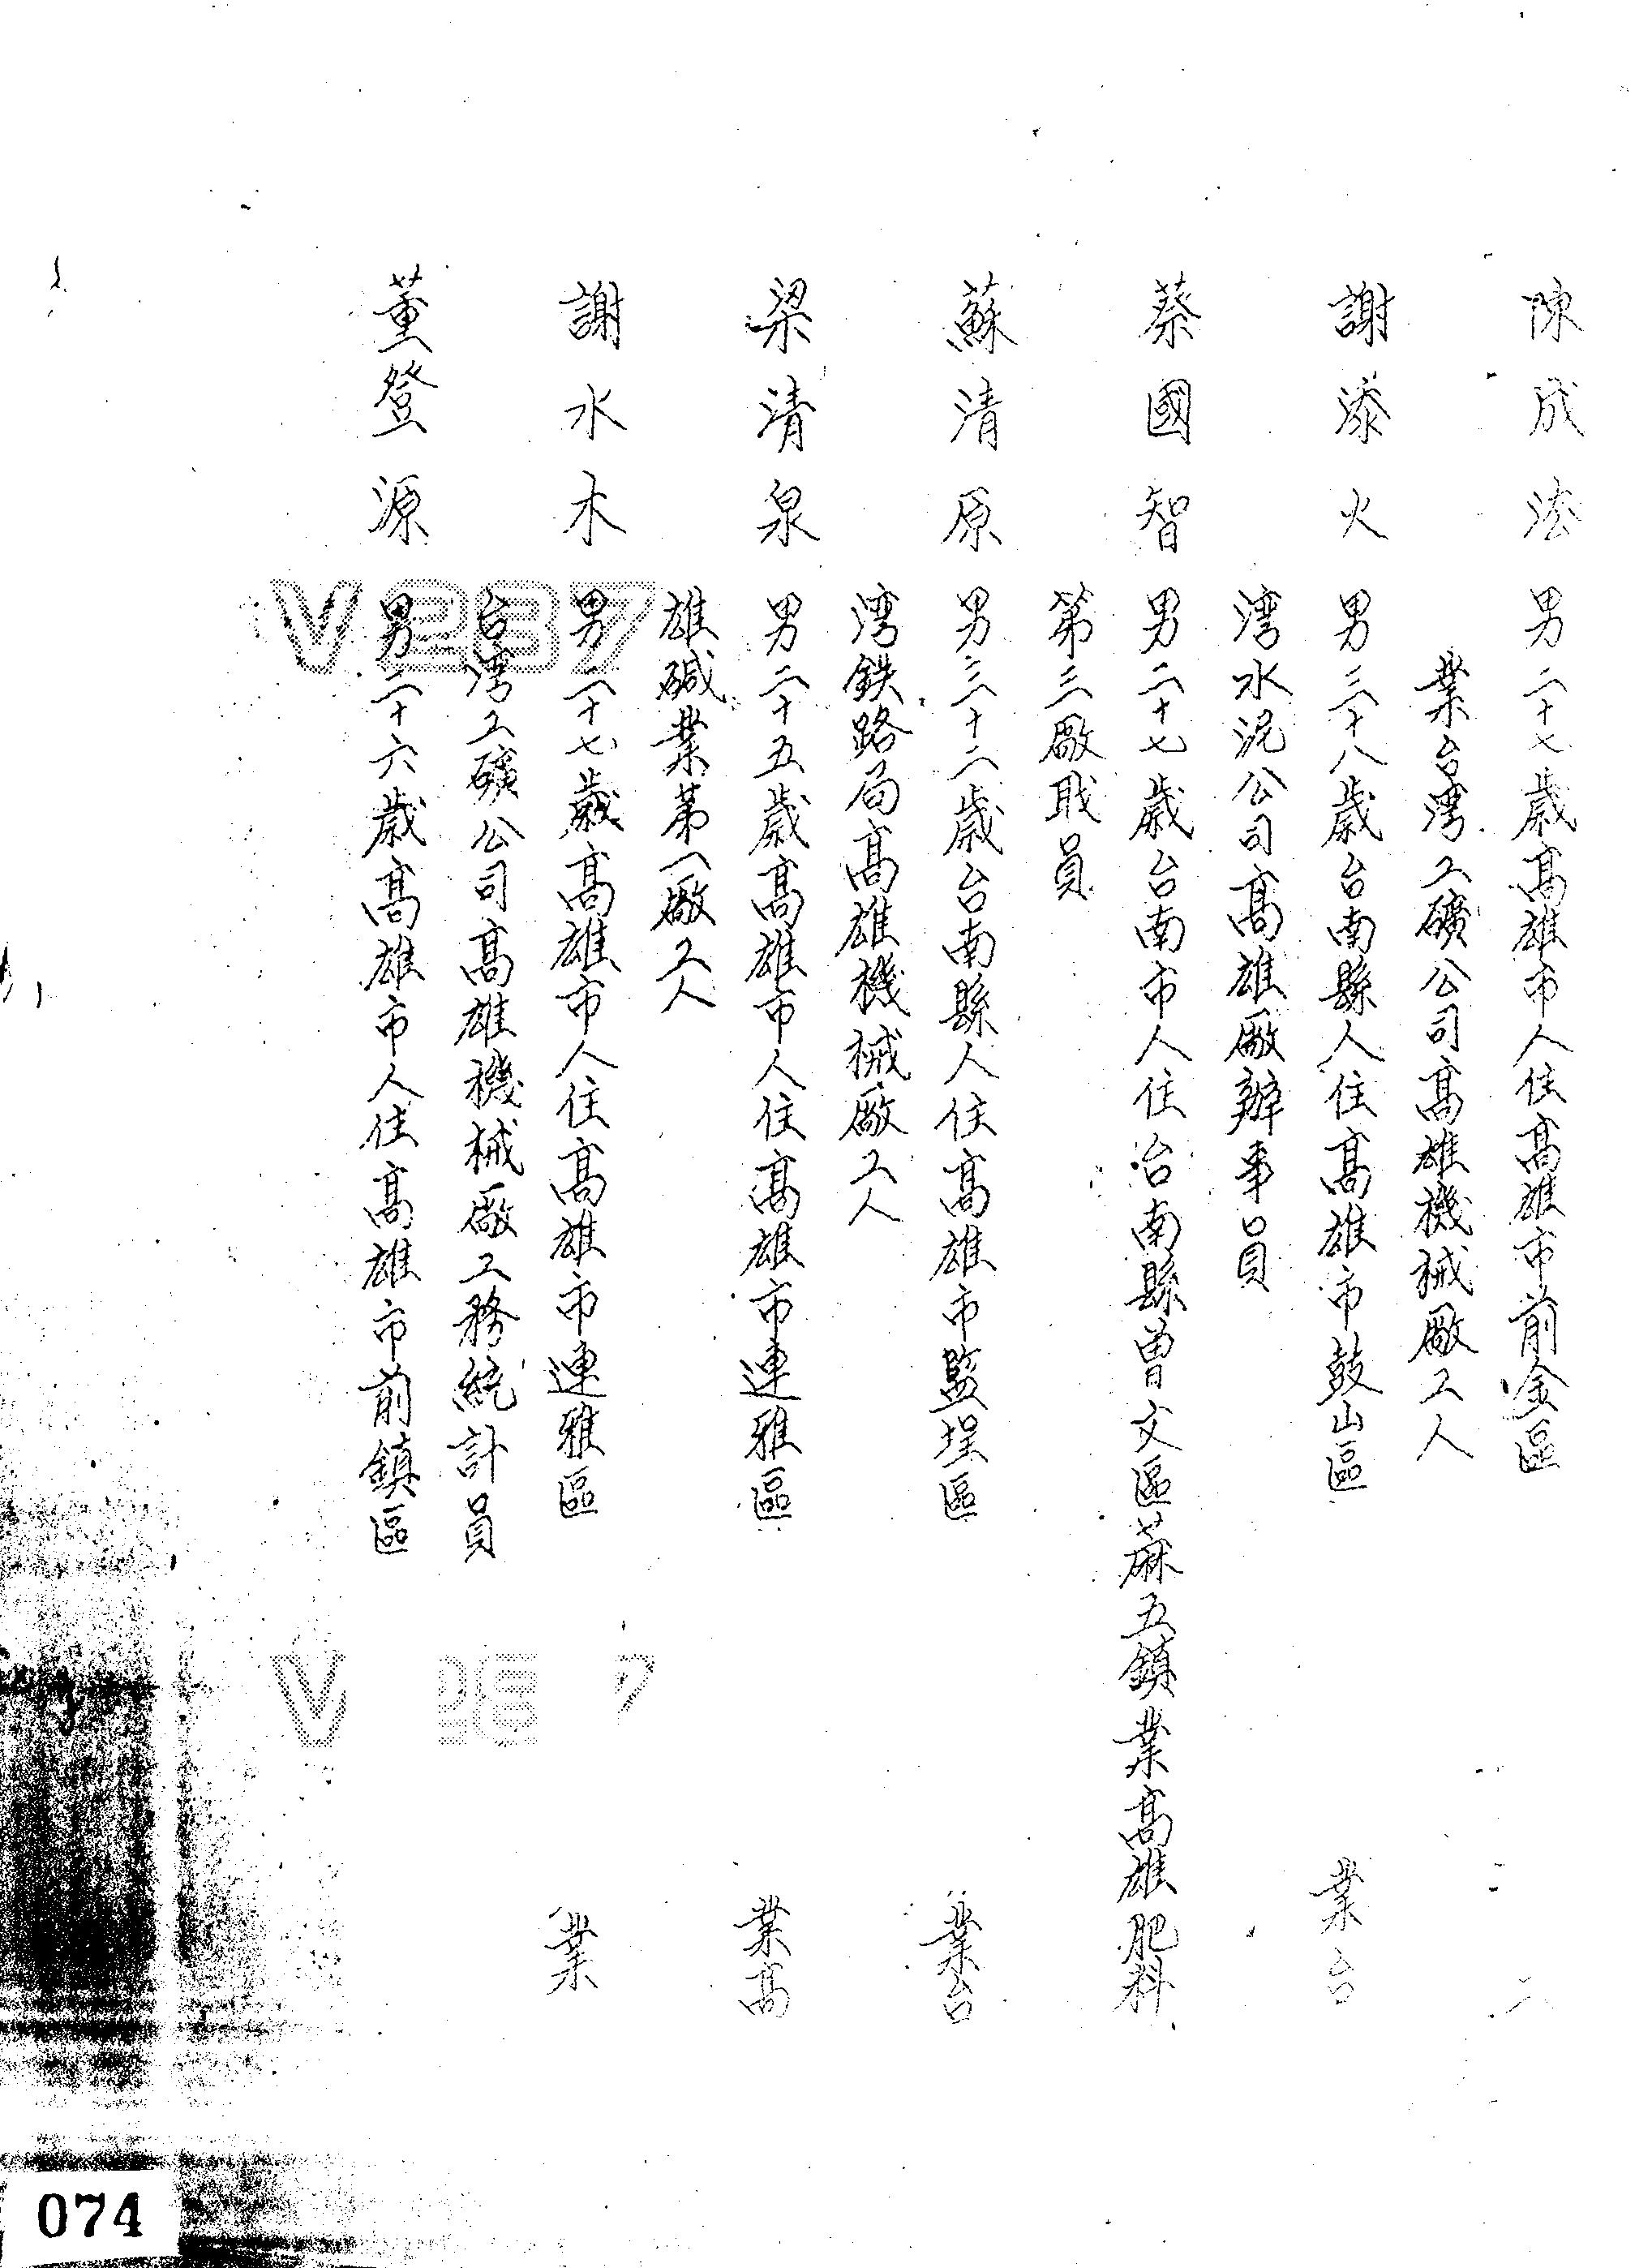 陳成法 男二十七歲高雄市人住高雄市前金區
業台湾工礦公司高雄機械廠工人
謝添火 男三十八歲台南縣人住高雄市鼓山區 業台
湾水泥公司高雄廠辦事員
蔡國智 男二十七歲台南市人住台南縣曽文區蔴五鎮業高雄肥料
第三廠戝員
蘇清原 男三十二歲台南縣人住高雄市監埕區 業台
湾鉄路局高雄機械廠工人
梁清泉 男二十五歲高雄市人住高雄市連雅區 業高
雄碱業第一廠工人
謝水木 男二十七歲高雄市人住高雄市連雅區 業
台湾工礦公司高雄機械廠工務統計員
董登源 男二十六歲高雄市人住高雄市前鎮區
V287
074